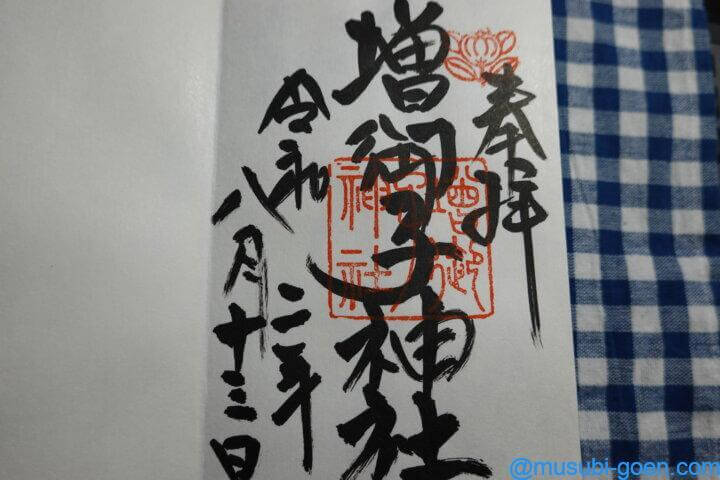 奉拝
増御子神社
令和二年
八月十三日
増御子神社
@musubi-goen.com